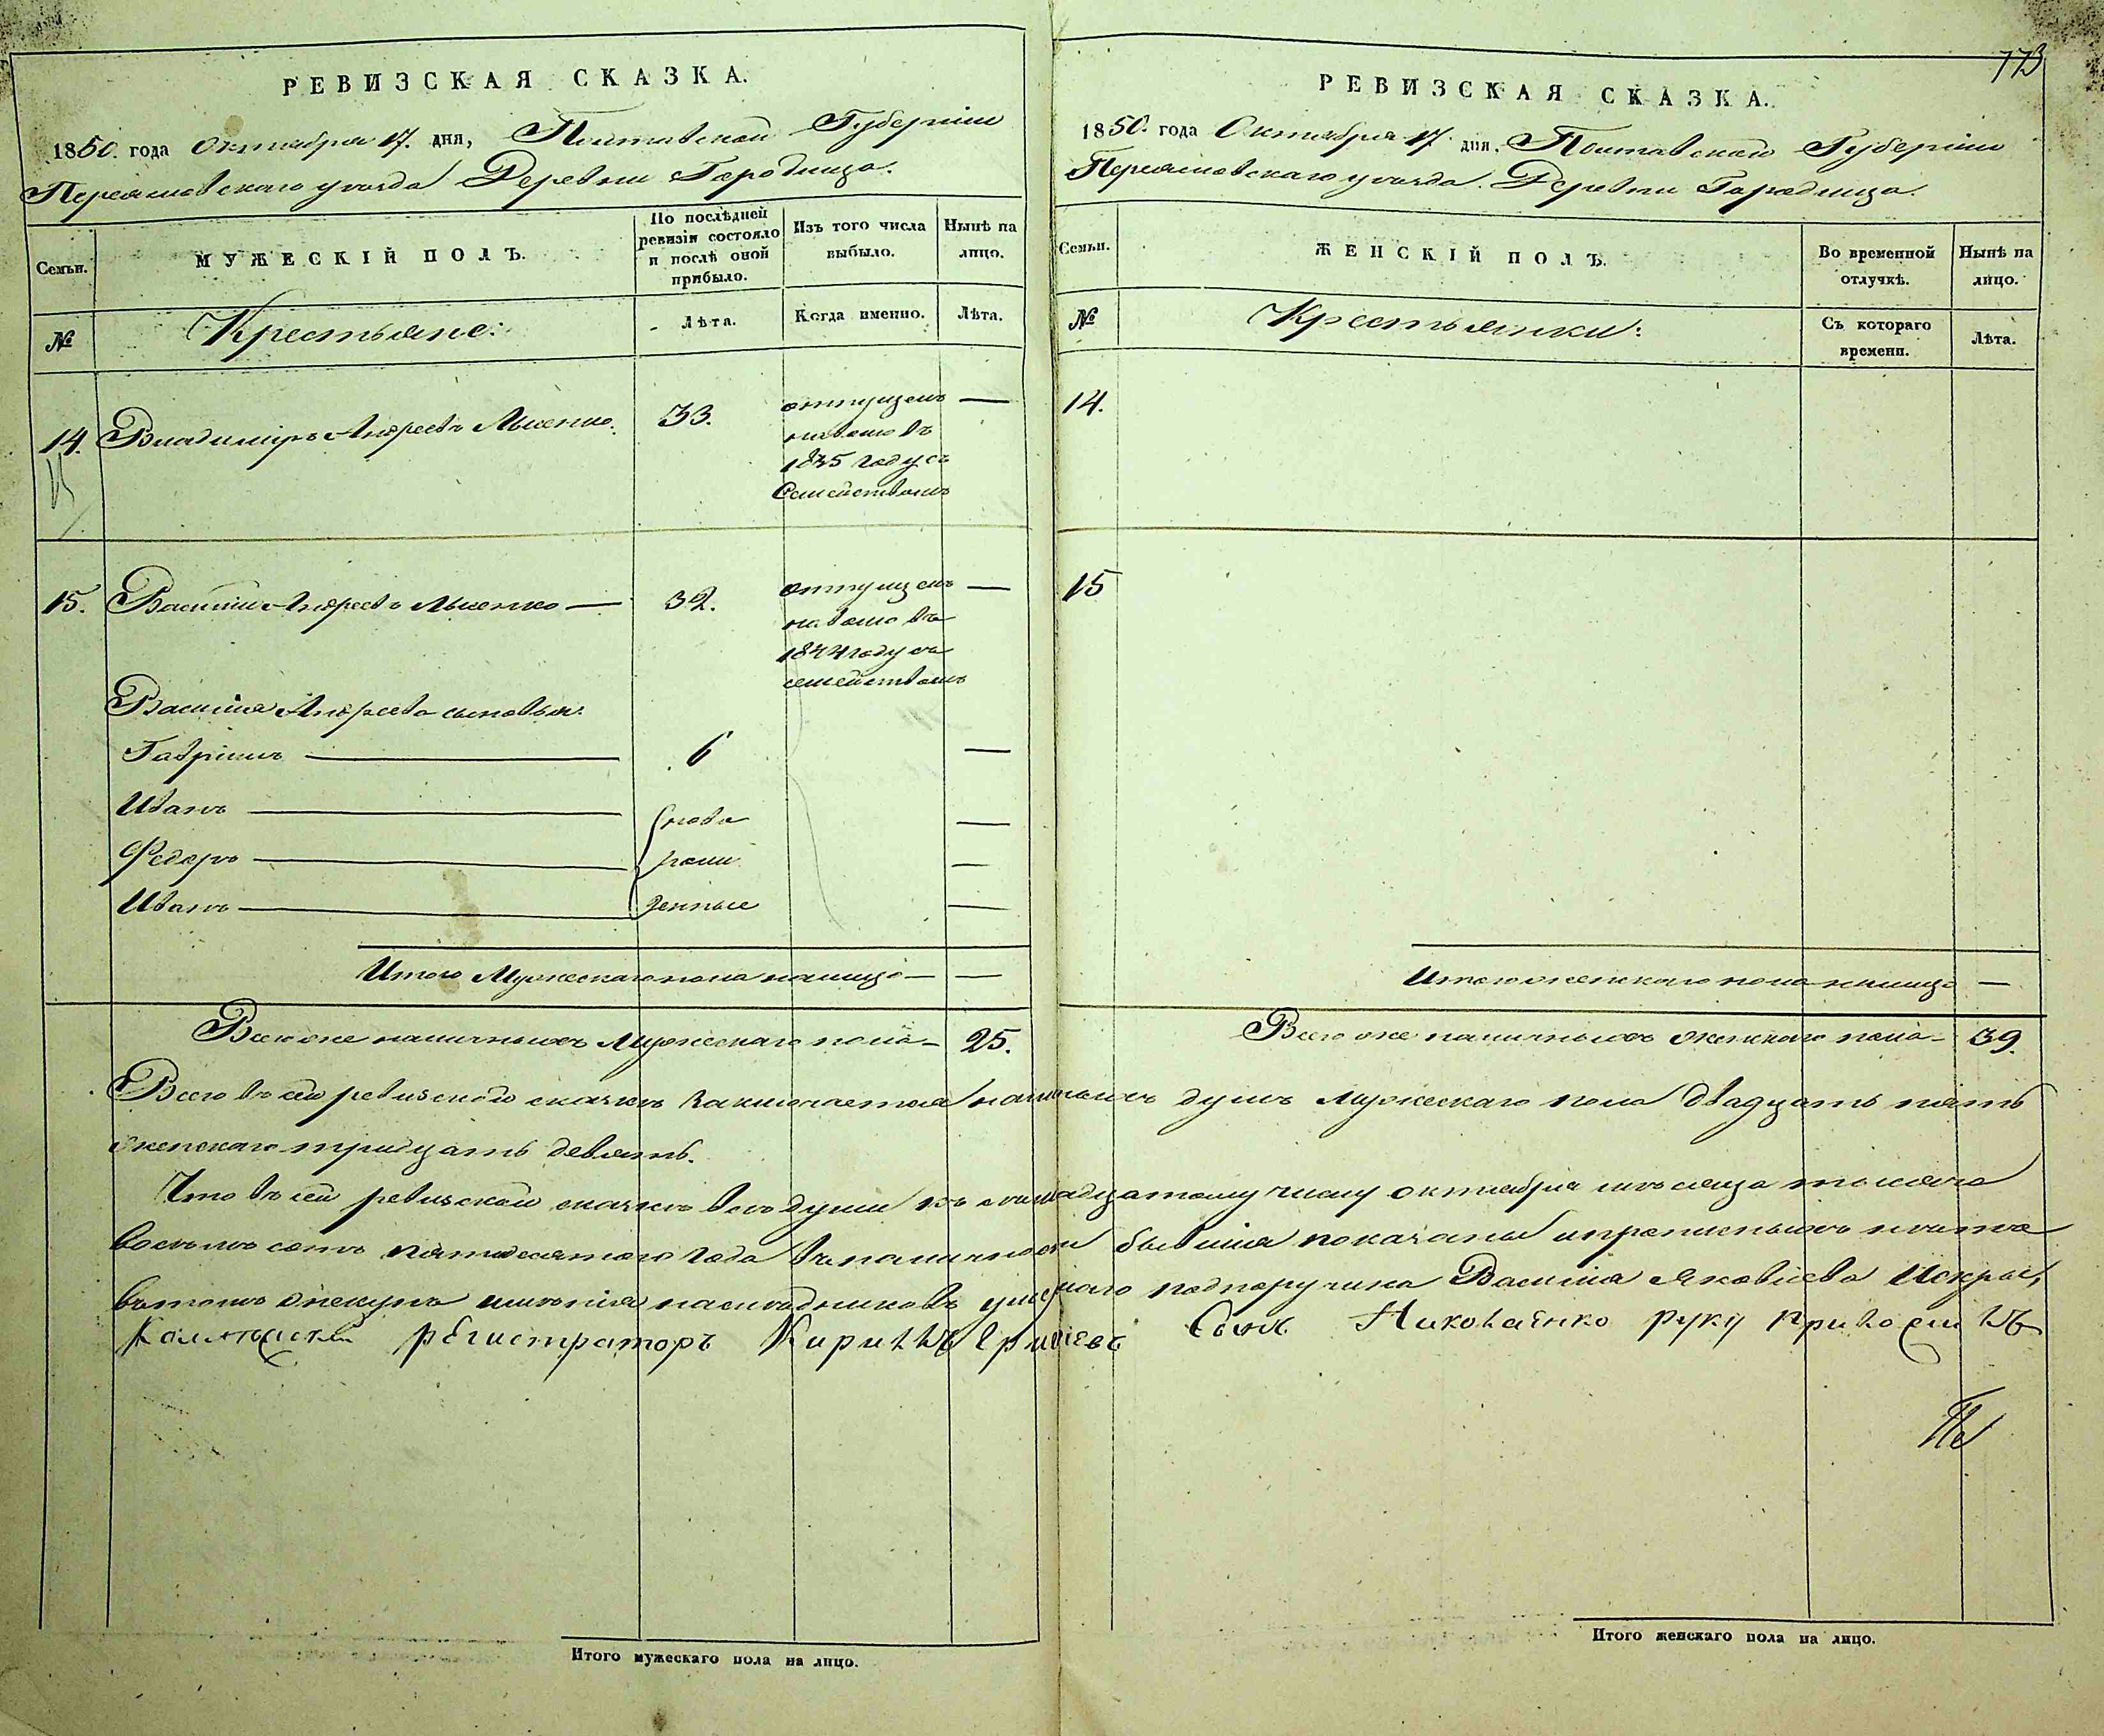 773
РЕВИЗСКАЯ СКАЗКА.
1850. года Октября 17. дня, Полтавской Губерніи
Переяславскаго уѣзда Деревни Городища.
Семьи.
МУЖЕСКІЙ ПОЛЪ.
По послѣдней ревизіи состояло и послѣ оной прибыло.
Изъ того числа выбыло.
Нынѣ на лицо.
№
Крестьяне:
Лѣта.
Когда именно.
Лѣта.
14. Владиміръ Андреевъ Лысенко. 33. отпущенъ —
на волю въ
1835 году съ
Семействомъ
15. Василій Андреевъ Лысенко — 32. отпущенъ —
на волю въ
1844 году съ
семействомъ
Василія Андреева сыновья:
Гавріилъ — 6 —
Иванъ — нова —
Федоръ — рож —
Иванъ — денные —
Итого Мужескаго пола налицо — —
Всего же наличныхъ Мужескаго пола — 25.
РЕВИЗСКАЯ СКАЗКА.
1850. года Октября 17. дня, Полтавской Губерніи
Переяславскаго уѣзда. Деревни Городища.
Семьи.
ЖЕНСКІЙ ПОЛЪ.
Во временной отлучкѣ.
Нынѣ на лицо.
№
Крестьянки:
Съ котораго времени.
Лѣта.
14.
15
Итого женскаго пола налицо —
Всего же наличныхъ женскаго пола — 39.
Всего въ сей ревизской сказкѣ заключается наличныхъ душъ мужескаго пола двадцать пять
женскаго тридцать девять.
Что въ сей ревизской сказкѣ всѣ души къ семнадцатому числу октября мѣсяца тысяча
восемь сотъ пятидесятого года въ наличности бывшія показаны и прописныхъ нѣтъ
въ томъ опекунъ имѣнія наслѣдниковъ умершаго подпоручика Василія Яковлева Искры,
регистраторъ Кирилъ Сынъ Николаенко руку приложилъ
Итого мужескаго пола на лицо.
Итого женскаго пола на лицо.